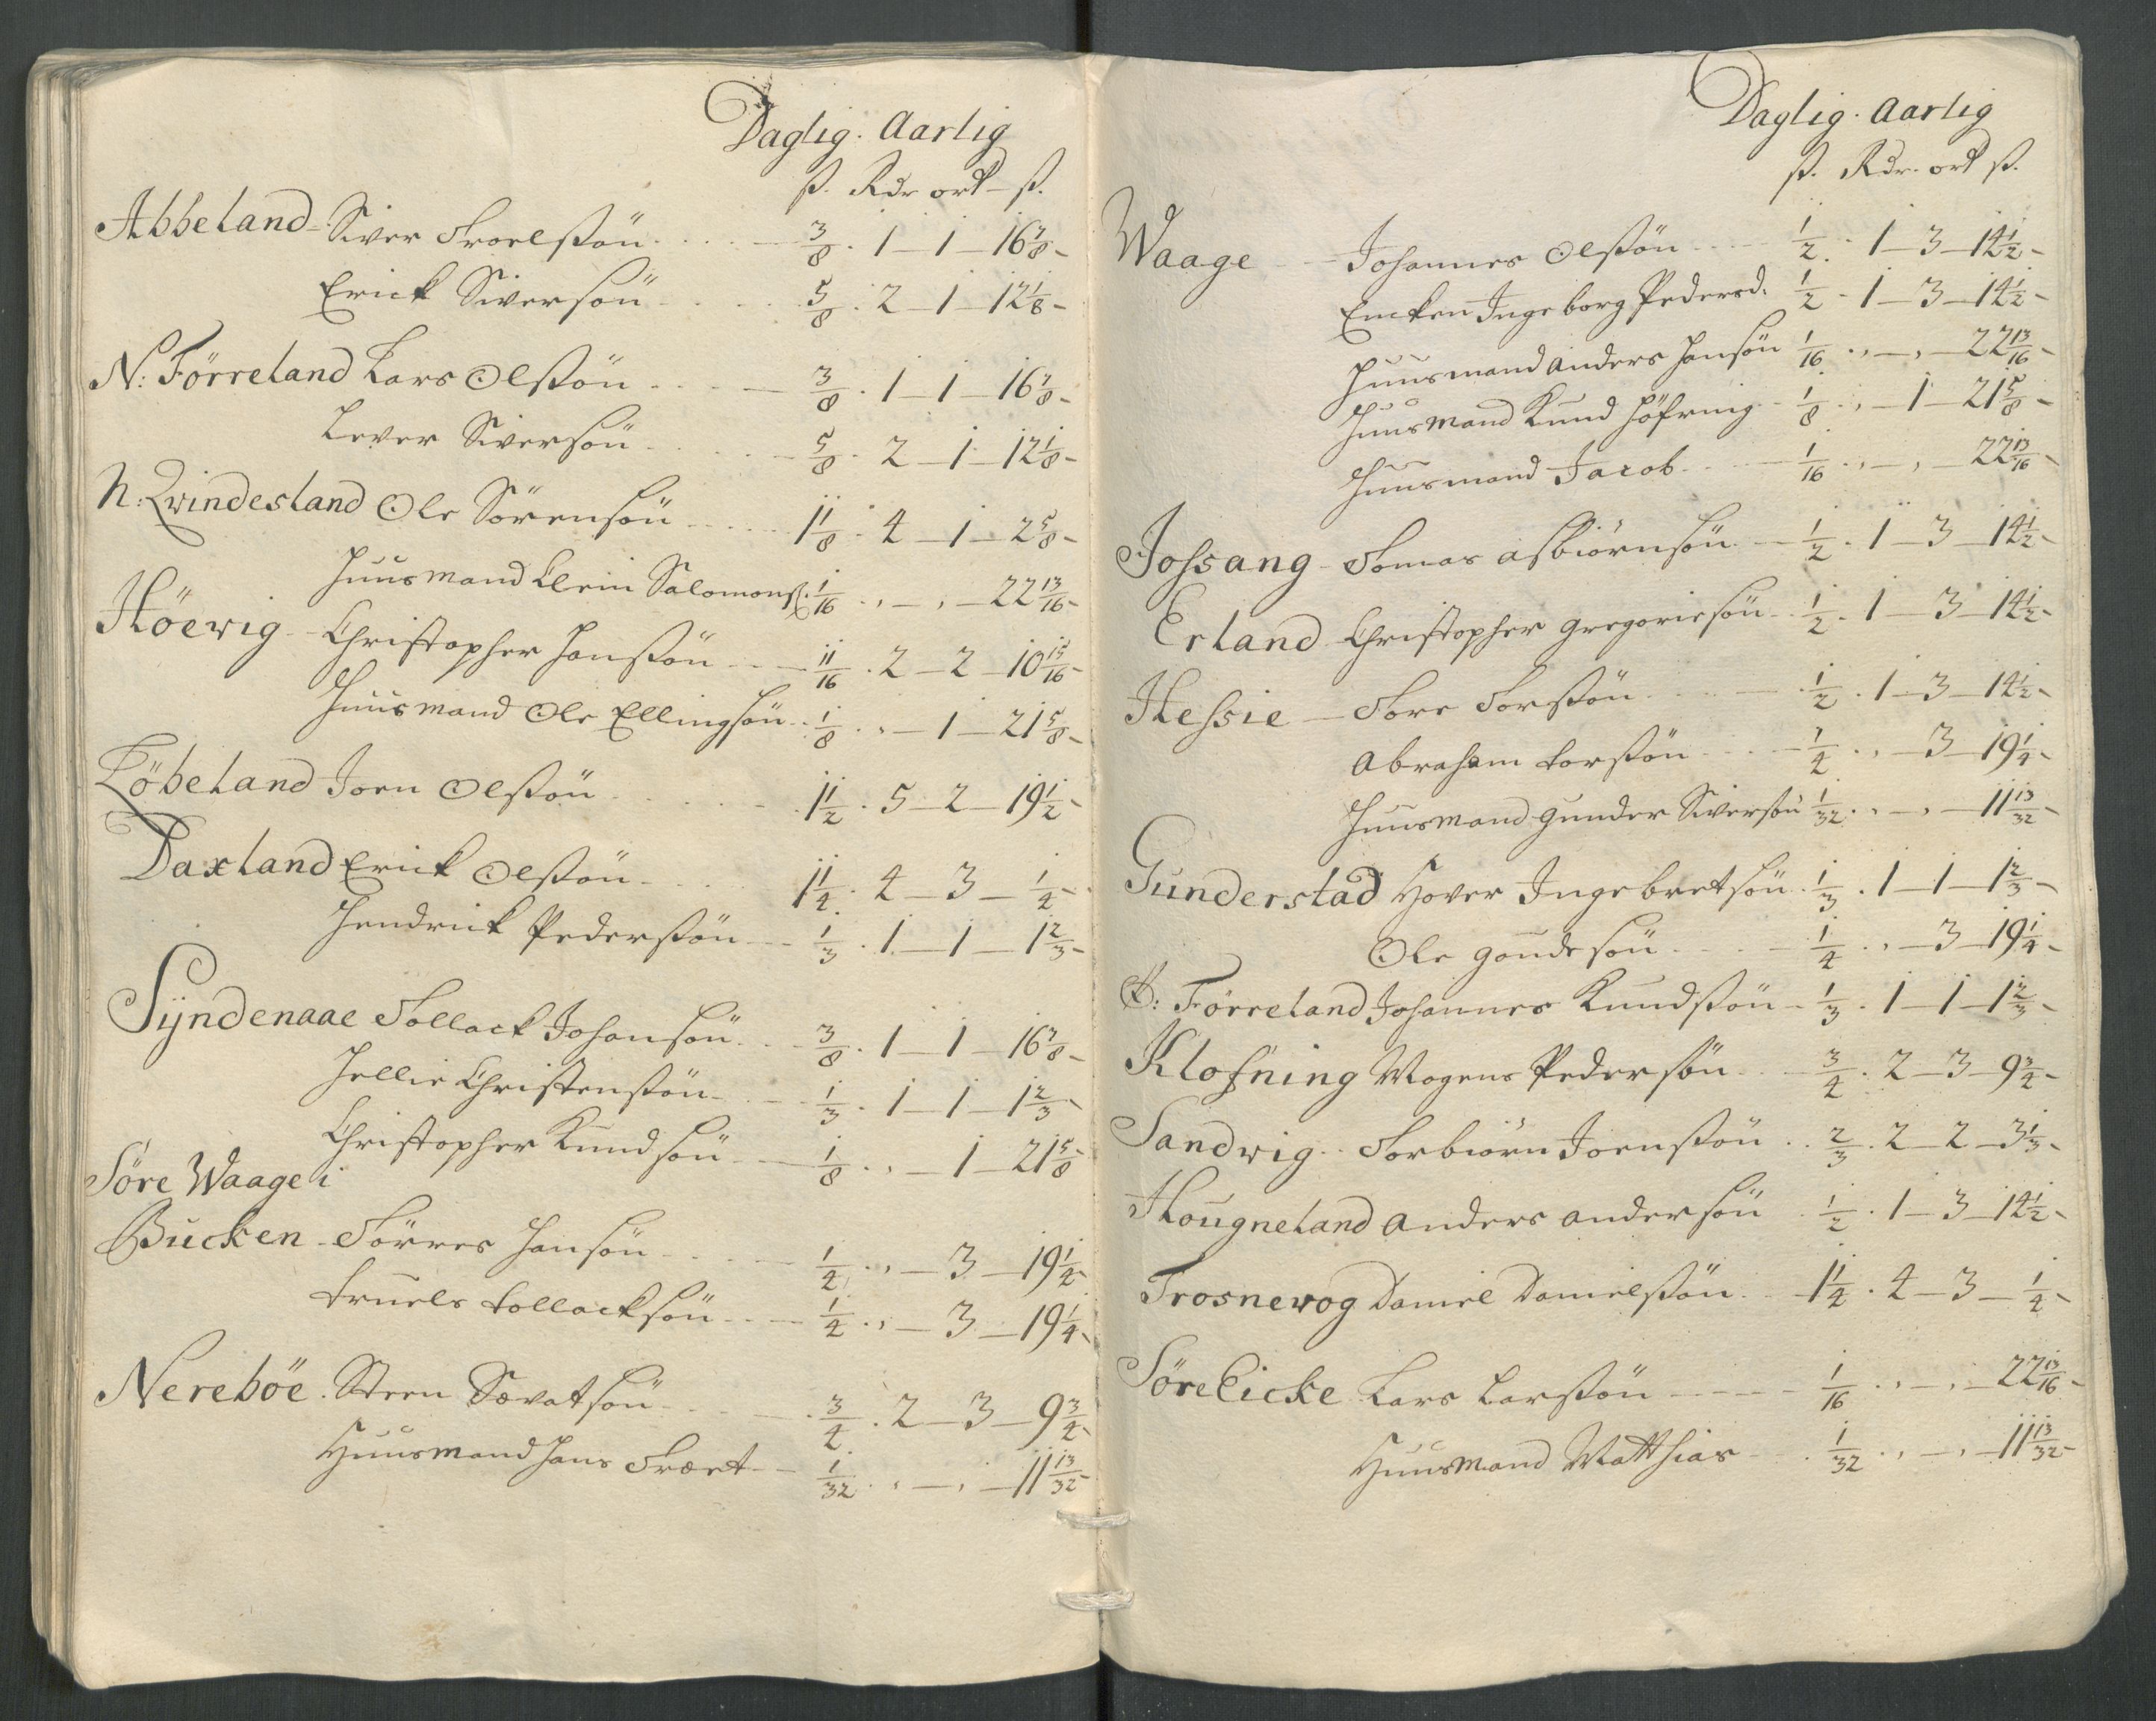 Daglig. Aarlig
ß. Rdr ort – ß.
Abbeland – Siver Troelssön . . . 3/8 . 1 – 1 – 16 7/8 –
Erick Siversön . . . 5/8 . 2 – 1 – 12 1/8 –
N: Förreland Lars Olssön . . . 3/8 . 1 – 1 – 16 7/8 –
Lever Siversön . . . 5/8 . 2 – 1 – 12 1/8 –
N: Qvindesland Ole Sörensön . . . 1 1/8 . 4 – 1 – 2 5/8 –
Huusmand Clein Salomons: 1/16 . „ – „ – 22 13/16 –
Höevig – Christopher Hanssön . . . 11/16 . 2 – 2 – 10 15/16 –
Huusmand Ole Ellingsön . . 1/8 . „ – 1 – 21 5/8 –
Löbeland Joen Olssön . . . 1 1/2 . 5 – 2 – 19 1/2 –
Daxland Erick Olssön . . . 1 1/4 . 4 – 3 – 1/4 –
Hendrick Pederssön . . 1/3 . 1 – 1 – 1 2/3 –
Sÿndenaae Tollack Johansön . . 3/8 . 1 – 1 – 16 7/8 –
Hellie Christenssön . . 1/3 . 1 – 1 – 1 2/3 –
Christopher Knudsön . . 1/8 . „ – 1 – 21 5/8
Söre Waage i
Bucken – Törres Hansön . . . 1/4 . „ – 3 – 19 1/4 –
Truels Tollacksön . . . 1/4 . „ – 3 – 19 1/4 –
Nereböe . Steen Sævatsön . . . 3/4 . 2 – 3 – 9 3/4 –
Huusmand Hans – 1/32 . „ – „ – 11 13/32 –
Daglig. Aarlig
ß. Rdr. ort ß.
Waage – Johannes Olssön . . . 1/2 . 1 – 3 – 14 1/2 –
Encken Ingeborg Pedersd: 1/2 . 1 – 3 – 14 1/2 –
Huusmand Anders Hansön 1/16 . „ – „ – 22 13/16 –
Huusmand Knud Höfring . 1/8 . „ – 1 – 21 5/8 –
Huusmand Jacob . . . 1/16 . „ – „ – 22 13/16 –
Jossang – Tomas Asbiörnsön . – 1/2 . 1 – 3 – 14 1/2 –
Erland Christopher Gregoriesön . . 1/2 . 1 – 3 – 14 1/2 –
Hessie – Tore Torssön . . . 1/2 . 1 – 3 – 14 1/2 –
Abraham Torssön . . . 1/4 . „ – 3 – 19 1/4 –
Huusmand Gunder Siversön 1/32 . „ – „ – 11 13/32 –
Gunderstad Hover Ingebretsön . 1/3 . 1 – 1 – 1 2/3 –
Ole Goudesön . . . 1/4 . „ – 3 – 19 1/4 –
Förreland Johannes Knudssön . 1/3 . 1 – 1 – 1 2/3 –
Klofning Mogens Pedersön . . . 3/4 . 2 – 3 – 9 3/4 –
Sandvig . . Torbiörn Joenssön . . 2/3 . 2 – 2 – 3 1/3 –
Hougneland Anders Andersön . 1/2 . 1 – 3 – 14 1/2 –
Trosnevog Daniel Danielssön . . 1 1/4 . 4 – 3 – 1/4 –
Söre Eicke Lars Larssön – – – 1/16 . „ – „ – 22 13/16 –
Huusmand Matthias – . 1/32 . „ – „ – 11 13/32 –